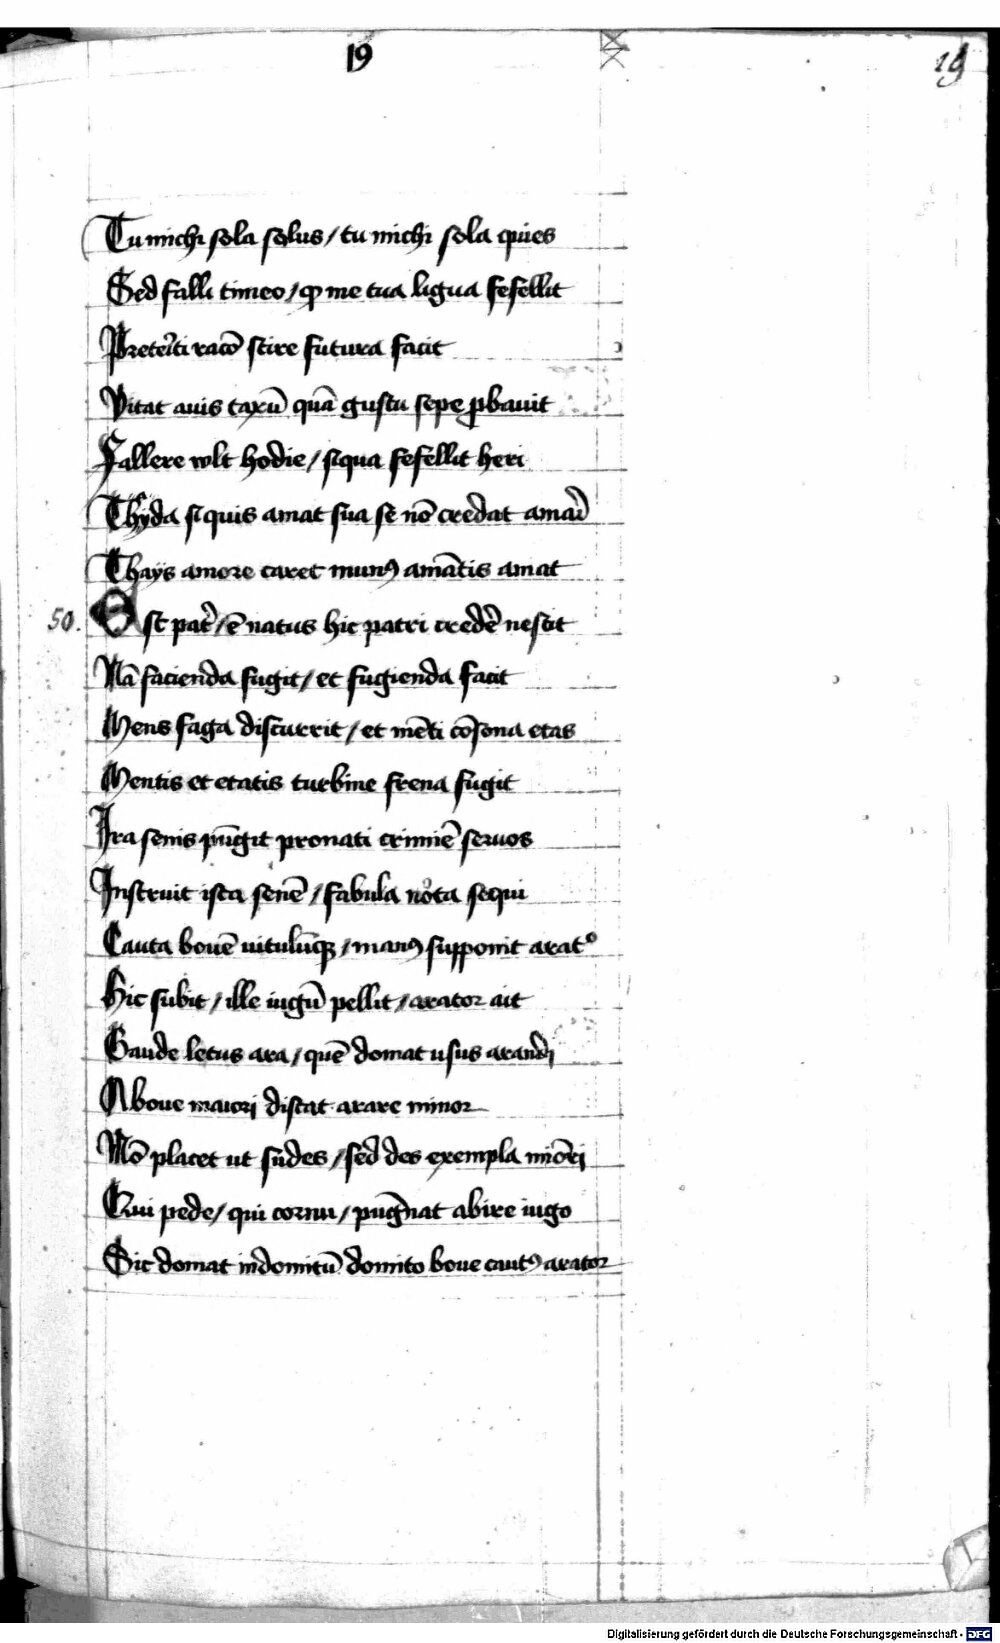 19
19
Tu michi sola salus / tu michi sola quies
Sed falli timeo / qꝫ me tua ligua fefellit
Preteīti racō scire futura facit
Vitat auis taxū quā gustu sepe ꝓbauit
Fallere wlt hodie / siqua fefellit heri
Thyda si quis amat sua se nō credat amari
Thays amore caret munꝰ amātis amat
50. Est pat̄ / ē natus hic patri credē nescit
Nā facienda fugit / et fugienda facit
Mens faga discurrit / et mēti cōsona etas
Mentis et etatis turbine frena fugit
Ira senis pūgit pronati crimīē seruos
Instruit ista senē / fabula nota sequi
Cauta bouē uitulūqꝫ / manꝰ supponit arato
Hic subit / ille iugū pellit / arator ait
Gaude letus ara / quē domat usus arandi
A boue maiori discat arare minor
Nō placet ut sudes / sed des exempla miōri
Qui pede / qui cornu / pugnat abire iugo
Sic domat indomitū domito boue cautꝰ arator
Digitalisierung gefördert durch die Deutsche Forschungsgemeinschaft - DFG